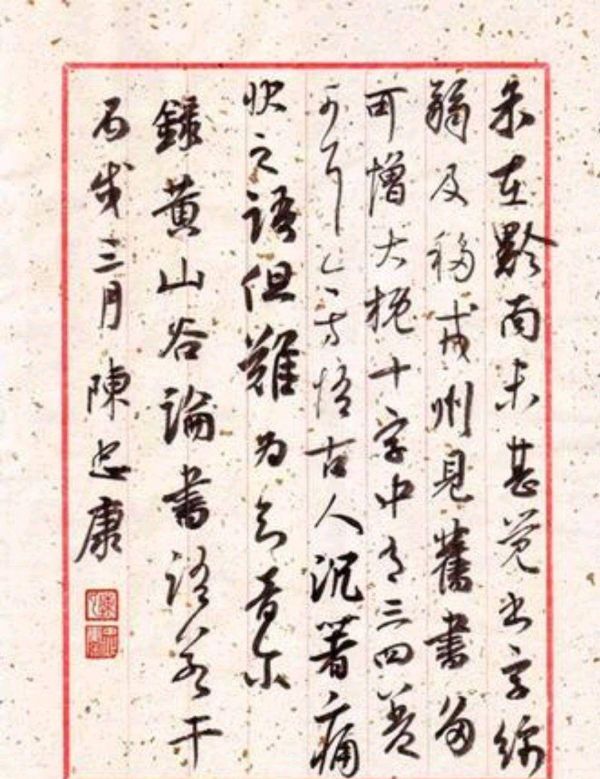 余在黔南未甚覺書字綿
弱及移戎州見舊書多
可憎大概十字中有三四差
可耳今方悟古人沉著痛
快之語但難為知音尔
錄黃山谷論書語若干
丙戌三月陳忠康